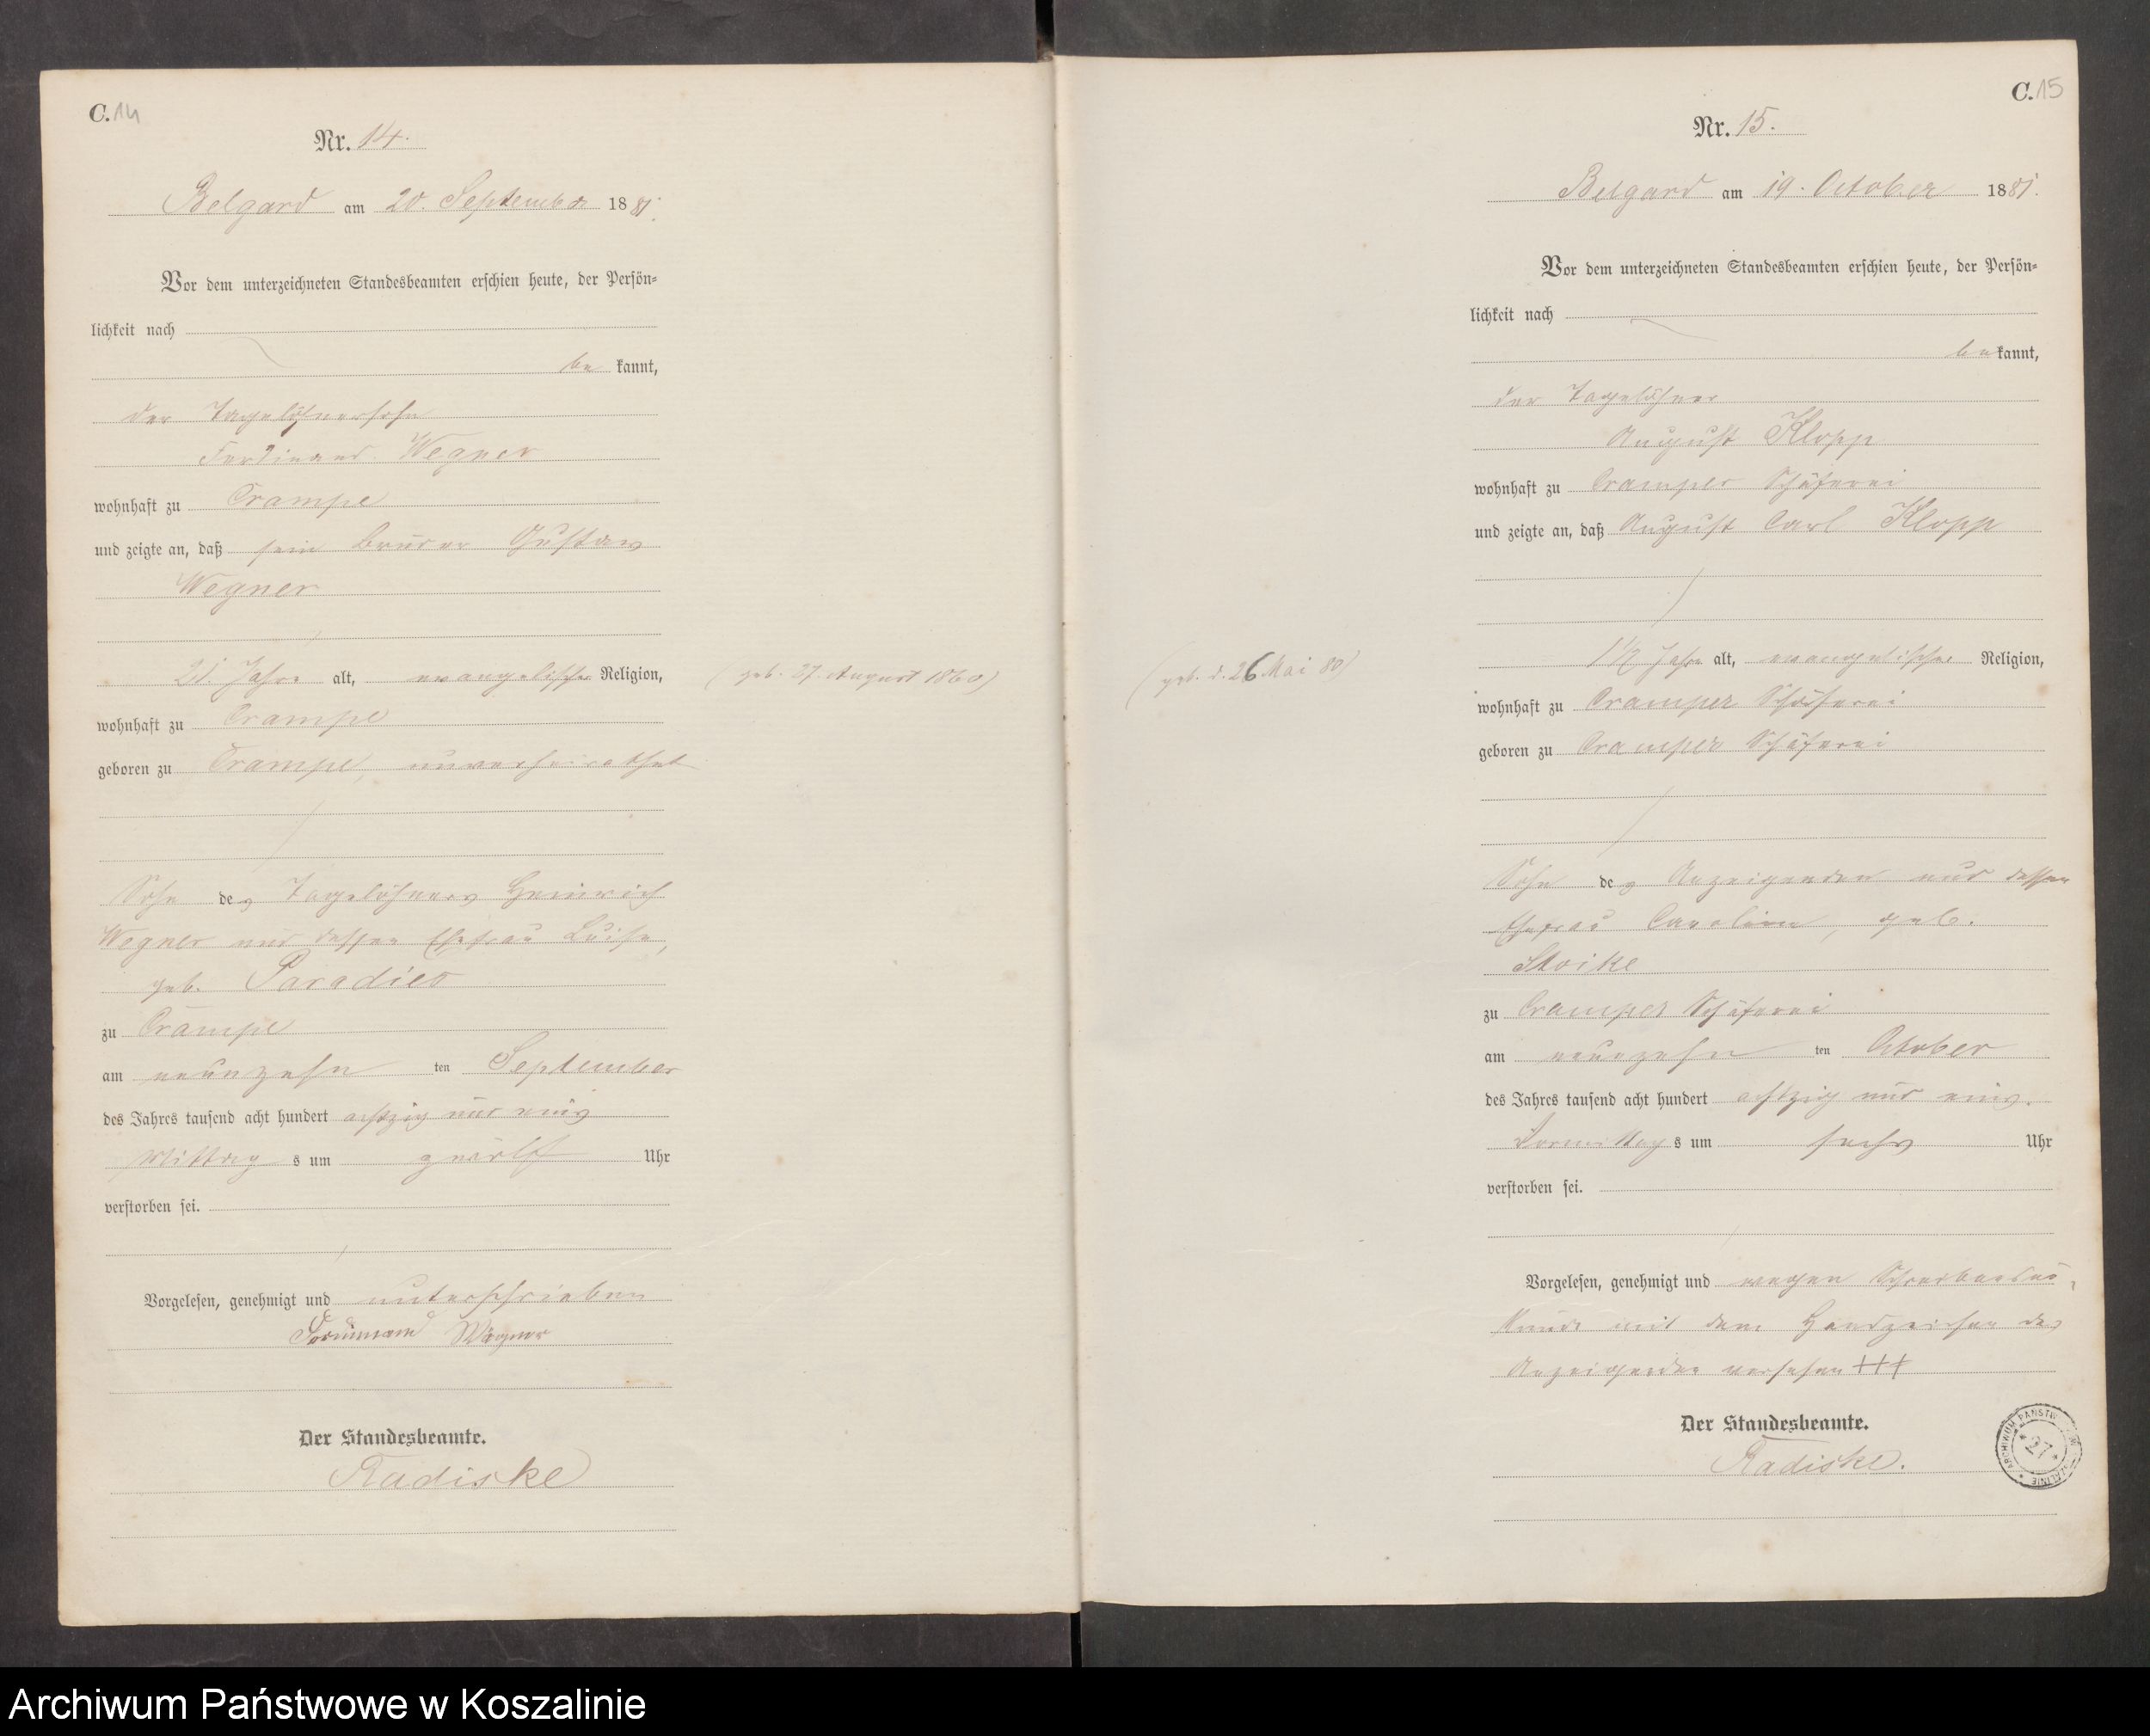 C. 14
Nr. 14.
Belgard am 20. September 1881.
Vor dem unterzeichneten Standesbeamten erschien heute, der Persön-
lichkeit nach
be kannt,
der Tagelöhnersohn
Ferdinand Wegner
wohnhaft zu Crampe
und zeigte an, daß sein Bruder Gustav
Wegner
21 Jahre alt, evangelischer Religion,
(geb. 27. August 1860)
wohnhaft zu Crampe
geboren zu Crampe, unverheirathet
Sohn des Tagelöhners Heinrich
Wegner und dessen Ehefrau Luise,
geb. Paradies
zu Crampe
am neunzehn ten September
des Jahres tausend acht hundert achtzig und eins
Mittag s um zwölf Uhr
verstorben sei.
Vorgelesen, genehmigt und unterschrieben
Wegner
Der Standesbeamte.
Radiske
C. 15
Nr. 15.
Belgard am 19. October 1881.
Vor dem unterzeichneten Standesbeamten erschien heute, der Persön-
lichkeit nach
be kannt,
der Tagelöhner
August Klopp
wohnhaft zu Cramper Schäferei
und zeigte an, daß August Carl Klopp
(geb. d. 26. Mai 80)
1½ Jahre alt, evangelischer Religion,
wohnhaft zu Cramper Schäferei
geboren zu Cramper Schäferei
Sohn des Anzeigenden und dessen
Ehefrau Carolin, geb.
Stoike
zu Cramper Schäferei
am neunzehn ten October
des Jahres tausend acht hundert achtzig und eins.
Vormittag s um sechs Uhr
verstorben sei.
Vorgelesen, genehmigt und wegen Schreibensun-
kunde mit dem Handzeichen des
Anzeigenden versehen +++
Der Standesbeamte.
Radiske.
ARCHIWUM PAŃSTW
27
Archiwum Państwowe w Koszalinie